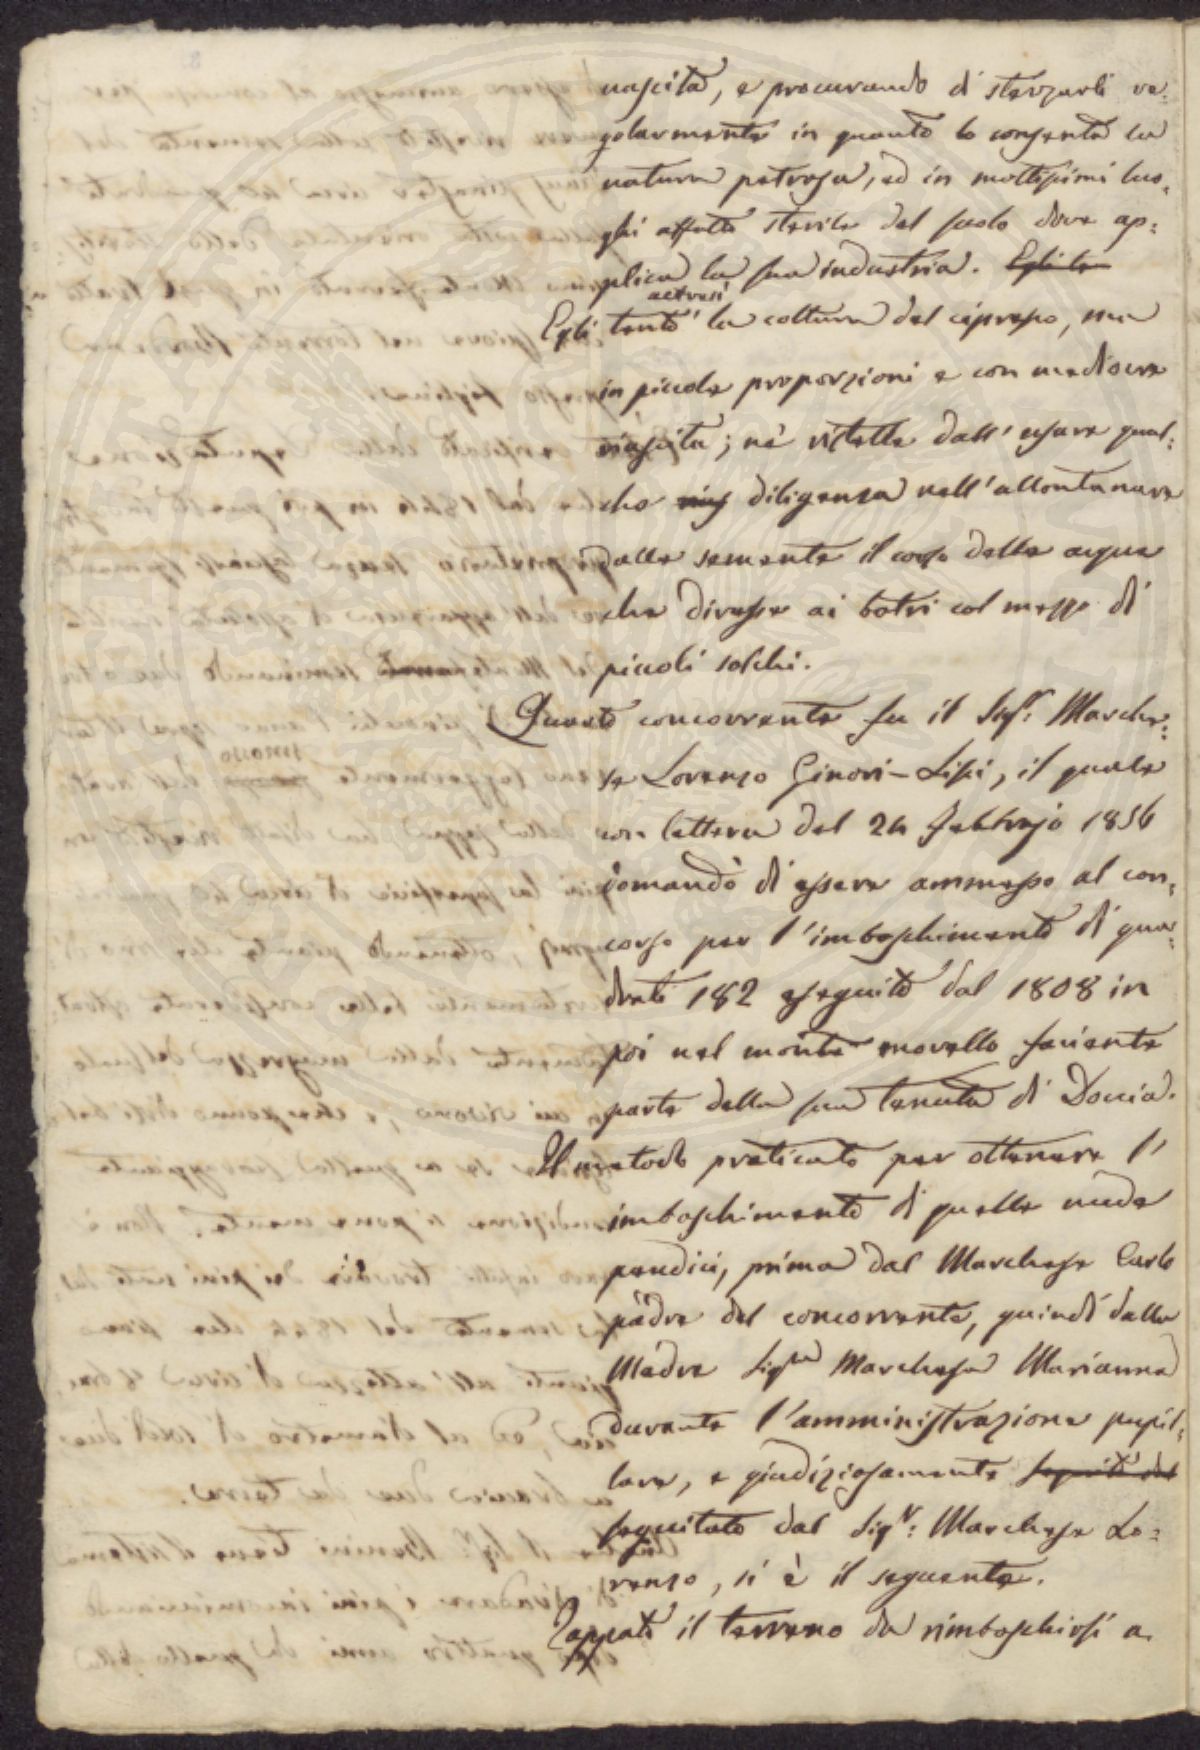 nascita, e procurando di sterzarli re=
golarmente in quanto lo consente la
natura petrosa, ed in moltissimi luo=
ghi affatto sterile del suolo dove ap=
plica la sua industria. Egli te
Egli tentò altresì la coltura del cipresso, ma
in piccole proporzioni e con mediocre
riuscita; nè ristette dall'usare qual=
che diligenza nell'allontanare
dalle semente il corso delle acque
che diresse ai botri col mezzo di
piccoli solchi.
Quarto concorrente fu il Sigr. Marche=
se Lorenzo Ginori-Lisci, il quale
con lettera del 24 Febbrajo 1856
domandò di essere ammesso al con=
corso per l'imboschimento di qua=
drati 182 eseguito dal 1808 in
poi nel monte morello faciente
parte della sua tenuta di Doccia.
Il metodo praticato per ottenere l'
imboschimento di quelle nude
pendici, prima dal Marchese Carlo
padre del concorrente, quindi dalla
Madre Sigra Marchesa Marianna
durante l'amministrazione pupil=
lare, e giudiziosamente seguito dal
seguitato dal Sigr: Marchese Lo=
renzo, si è il seguente.
Zappato il terreno da rimboschirsi a